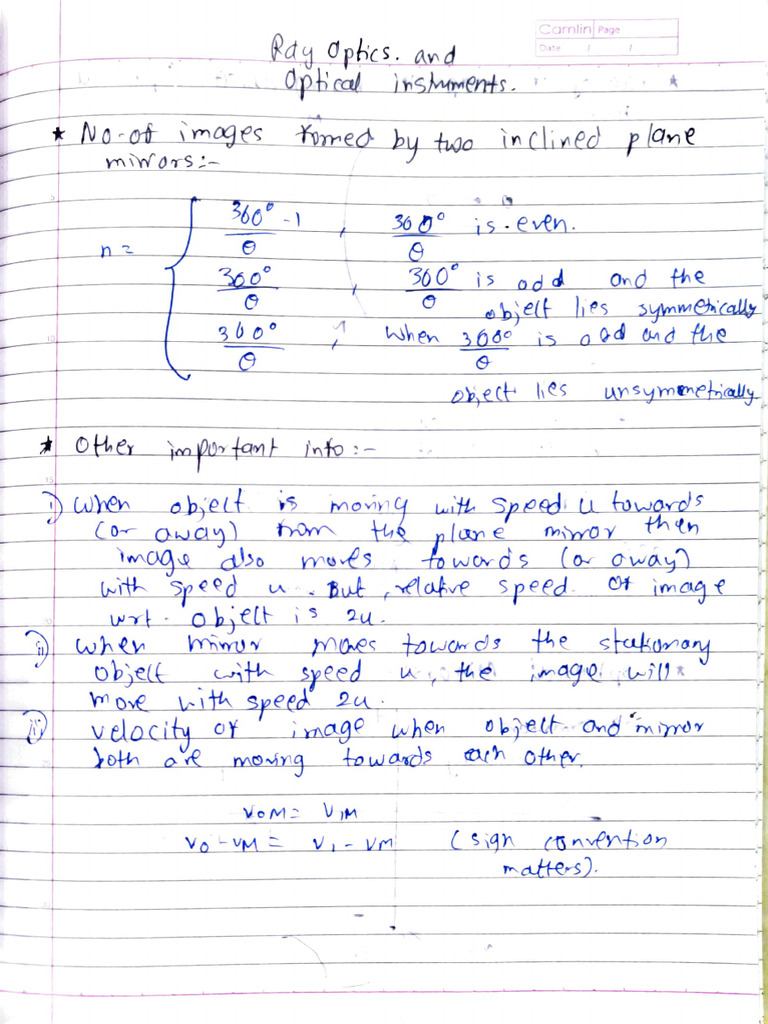 Camlin Page
Date / /
Ray Optics. and
Optical instruments.
* No-of images formed by two inclined plane
mirrors:-
n = { 360°/θ - 1 , 360°/θ is even.
360°/θ , 360°/θ is odd and the
object lies symmetrically
360°/θ , when 360°/θ is odd and the
object lies unsymmetrically
* Other important info:-
i) when object is moving with speed u towards
(or away) from the plane mirror then
image also moves towards (or away)
with speed u. But, relative speed of image
wrt. object is 2u.
ii) when mirror moves towards the stationary
object with speed u, the image will
move with speed 2u.
iii) velocity of image when object and mirror
both are moving towards each other.
VOM = VIM
VO - VM = VI - VM (sign convention
matters).